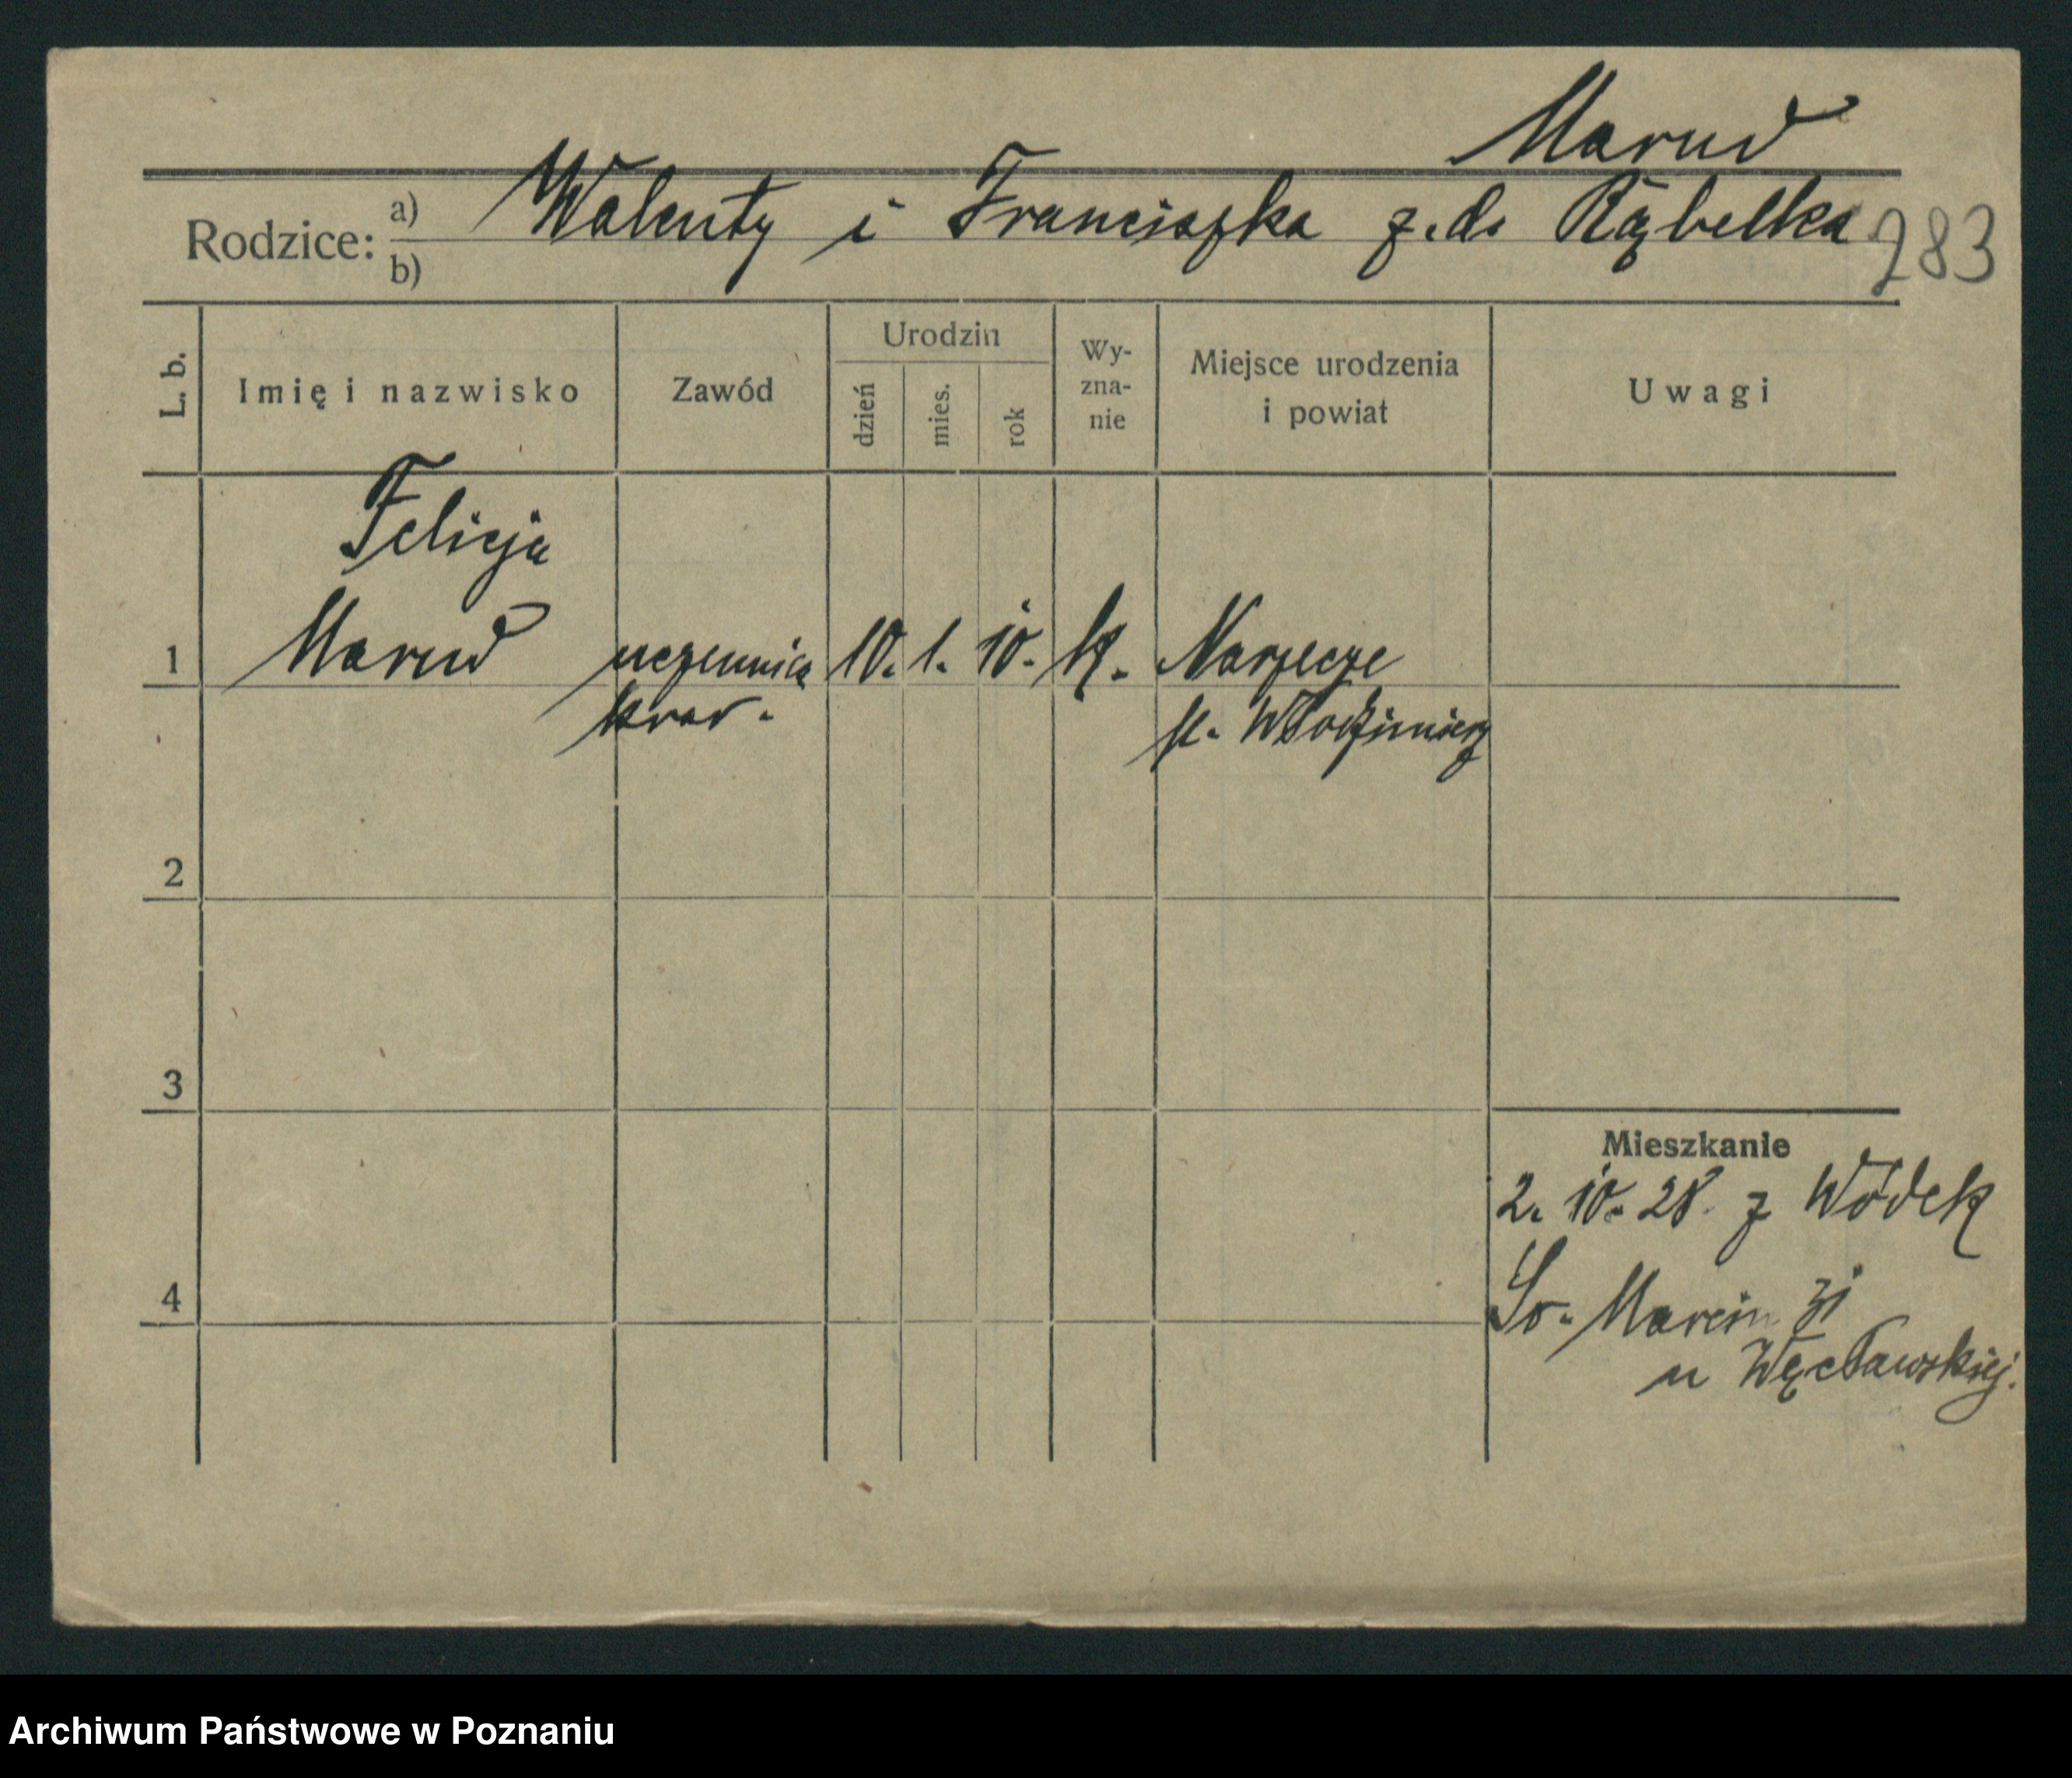 Marud
Rodzice: a) Walenty i Franciszka z.d. Rąbelka
b)
783
L. b.
Imię i nazwisko
Zawód
Urodzin
dzień
mies.
rok
Wy-
zna-
nie
Miejsce urodzenia
i powiat
Uwagi
Felicja
1 Marud uczennica 10. 1. 10. k. Narzecze
kraw. p. Włodzimierz
2
3
Mieszkanie
2. 10. 28. z Wódek
4
Św. Marcin 31
u Węcławskiej.
Archiwum Państwowe w Poznaniu